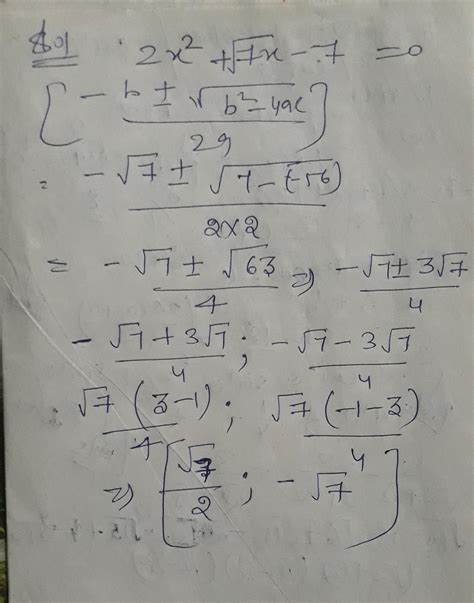 Sol 2x² + √7x - 7 = 0
[ -b ± √(b² - 4ac) / 2a ]
= -√7 ± √(7 - (-56)) / 2×2
= -√7 ± √63 / 4 ⇒ -√7 ± 3√7 / 4
-√7 + 3√7 / 4 ; -√7 - 3√7 / 4
√7 (3-1) / 4 ; √7 (-1-3) / 4
⇒ [ √7 / 2 ; -√7 ]